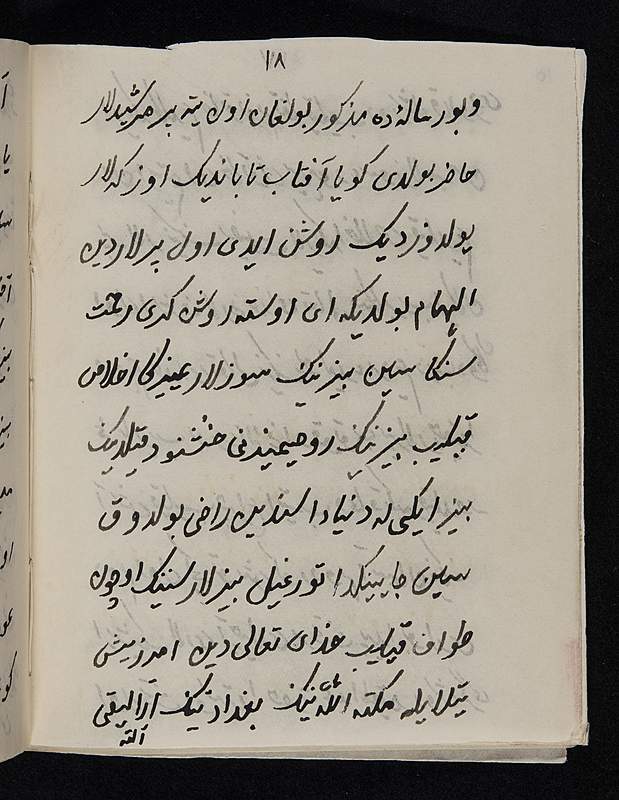 ١٨
و بو رساله‌ده مذکور بولغان اون یته پیر مرشیدلار
حاضر بولدی کویا آفتاب تاباندیک اوزکه‌لار
یولدوزدیک روشن ایدی اول پیرلاردین
الهام بولدیکه ای اوسته روشن کری رحمت
سنکا سین بیزنینک سوزلاریمیزکا اخلاص
قیلیب بیزنینک روحیمیزنی خشنود قیلدینک
بیز ایککی‌له دنیادا سندین راضی بولدوق
سین جایینکدا تورغیل بیزلار سنینک اوچون
طواف قیلیب خدای تعالی دین امرزیش
تیلایله مکته الله نینک بغدادنینک آرالیقی
آلته